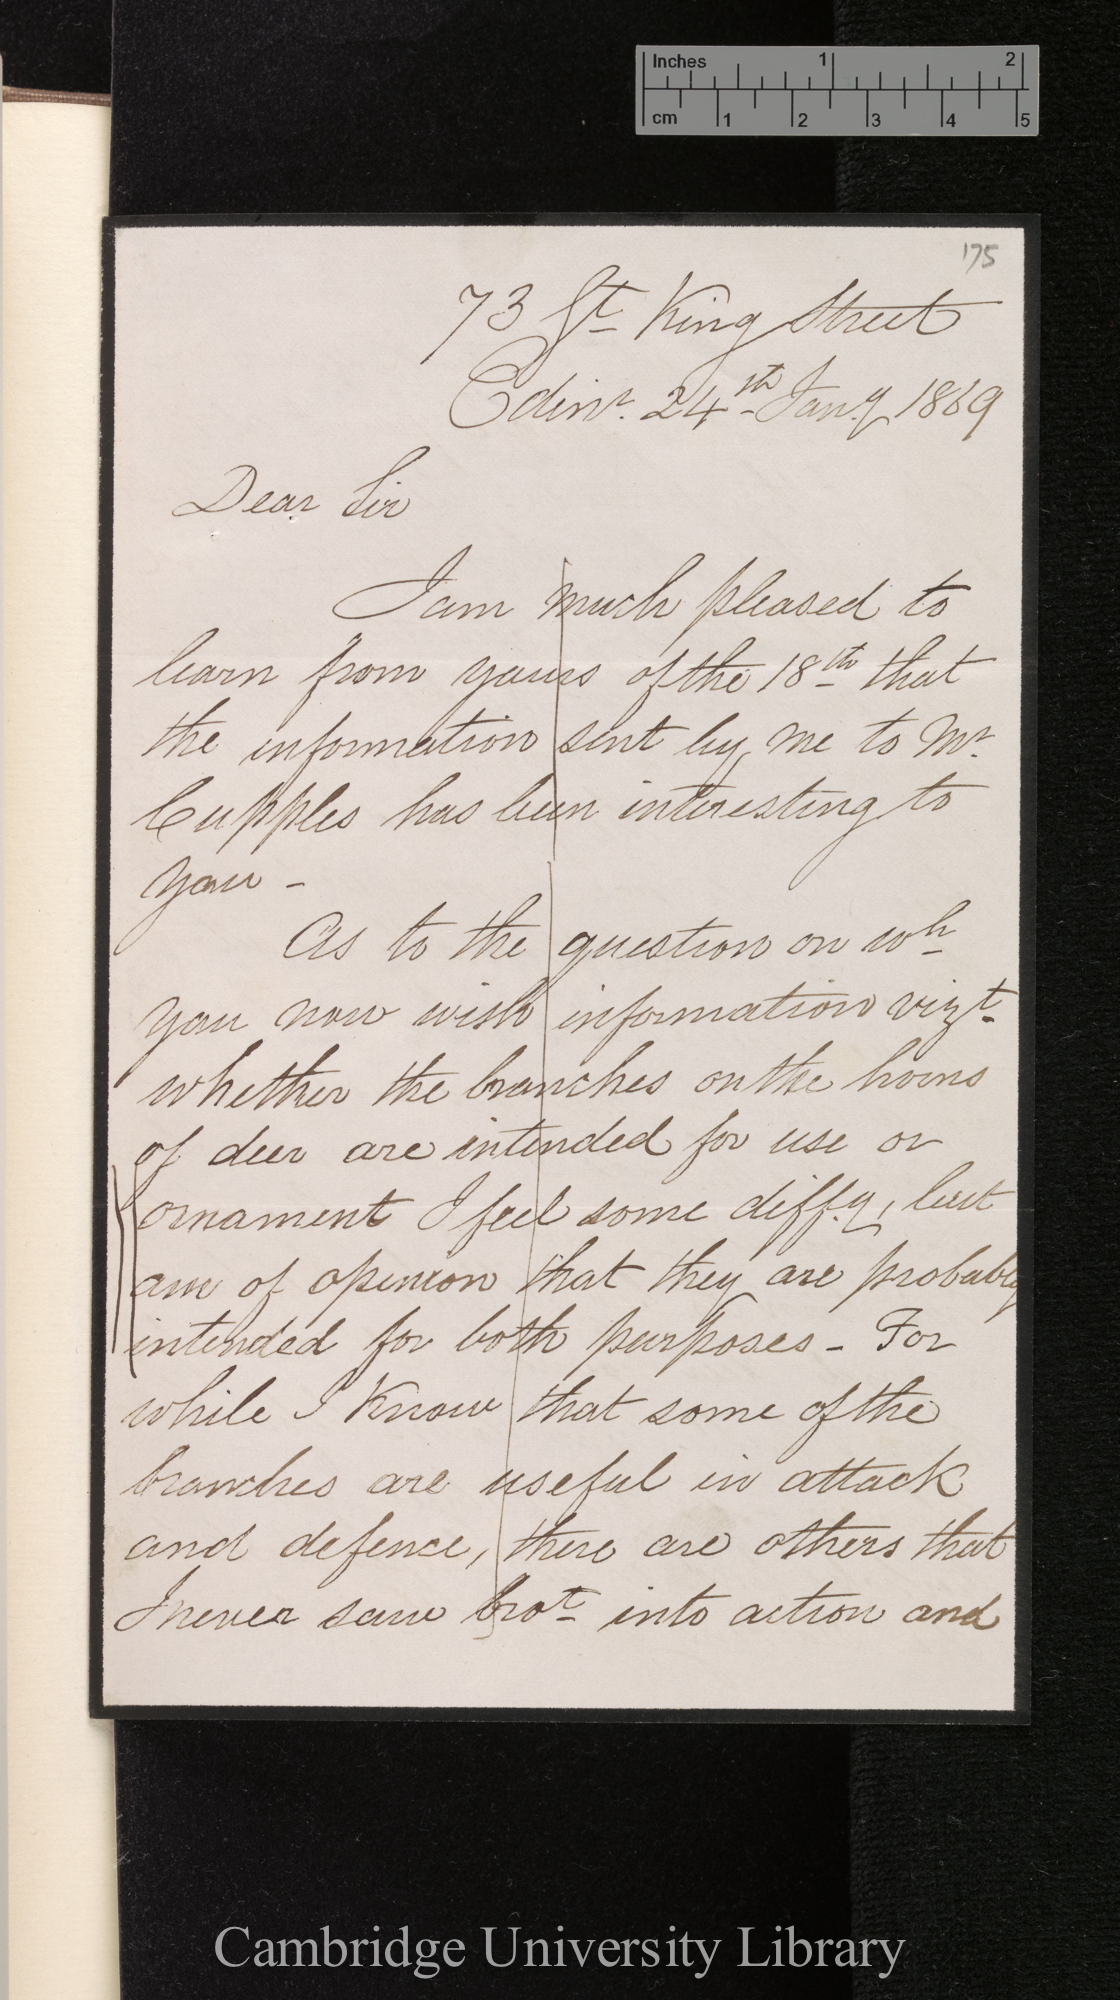 Inches 1 2
cm 1 2 3 4 5
175
73 Gt King Street
Edinr. 24th Jany 1869
Dear Sir
I am much pleased to
learn from yours of the 18th that
the information sent by me to Mr
Cupples has been interesting to
you -
As to the question on wh
you now wish information vizt
whether the branches on the horns
of deer are intended for use or
ornament I feel some diffy, but
am of opinion that they are probably
intended for both purposes - For
while I know that some of the
branches are useful in attack
and defence, there are others that
I never saw brot into action and
Cambridge University Library